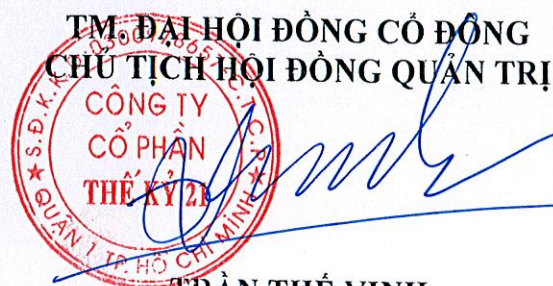 TM. ĐẠI HỘI ĐỒNG CỔ ĐÔNG
CHỦ TỊCH HỘI ĐỒNG QUẢN TRỊ
CÔNG TY
CỔ PHẦN
THẾ KỶ 21
QUẬN 1 TP. HỒ CHÍ MINH
TRẦN THẾ VINH